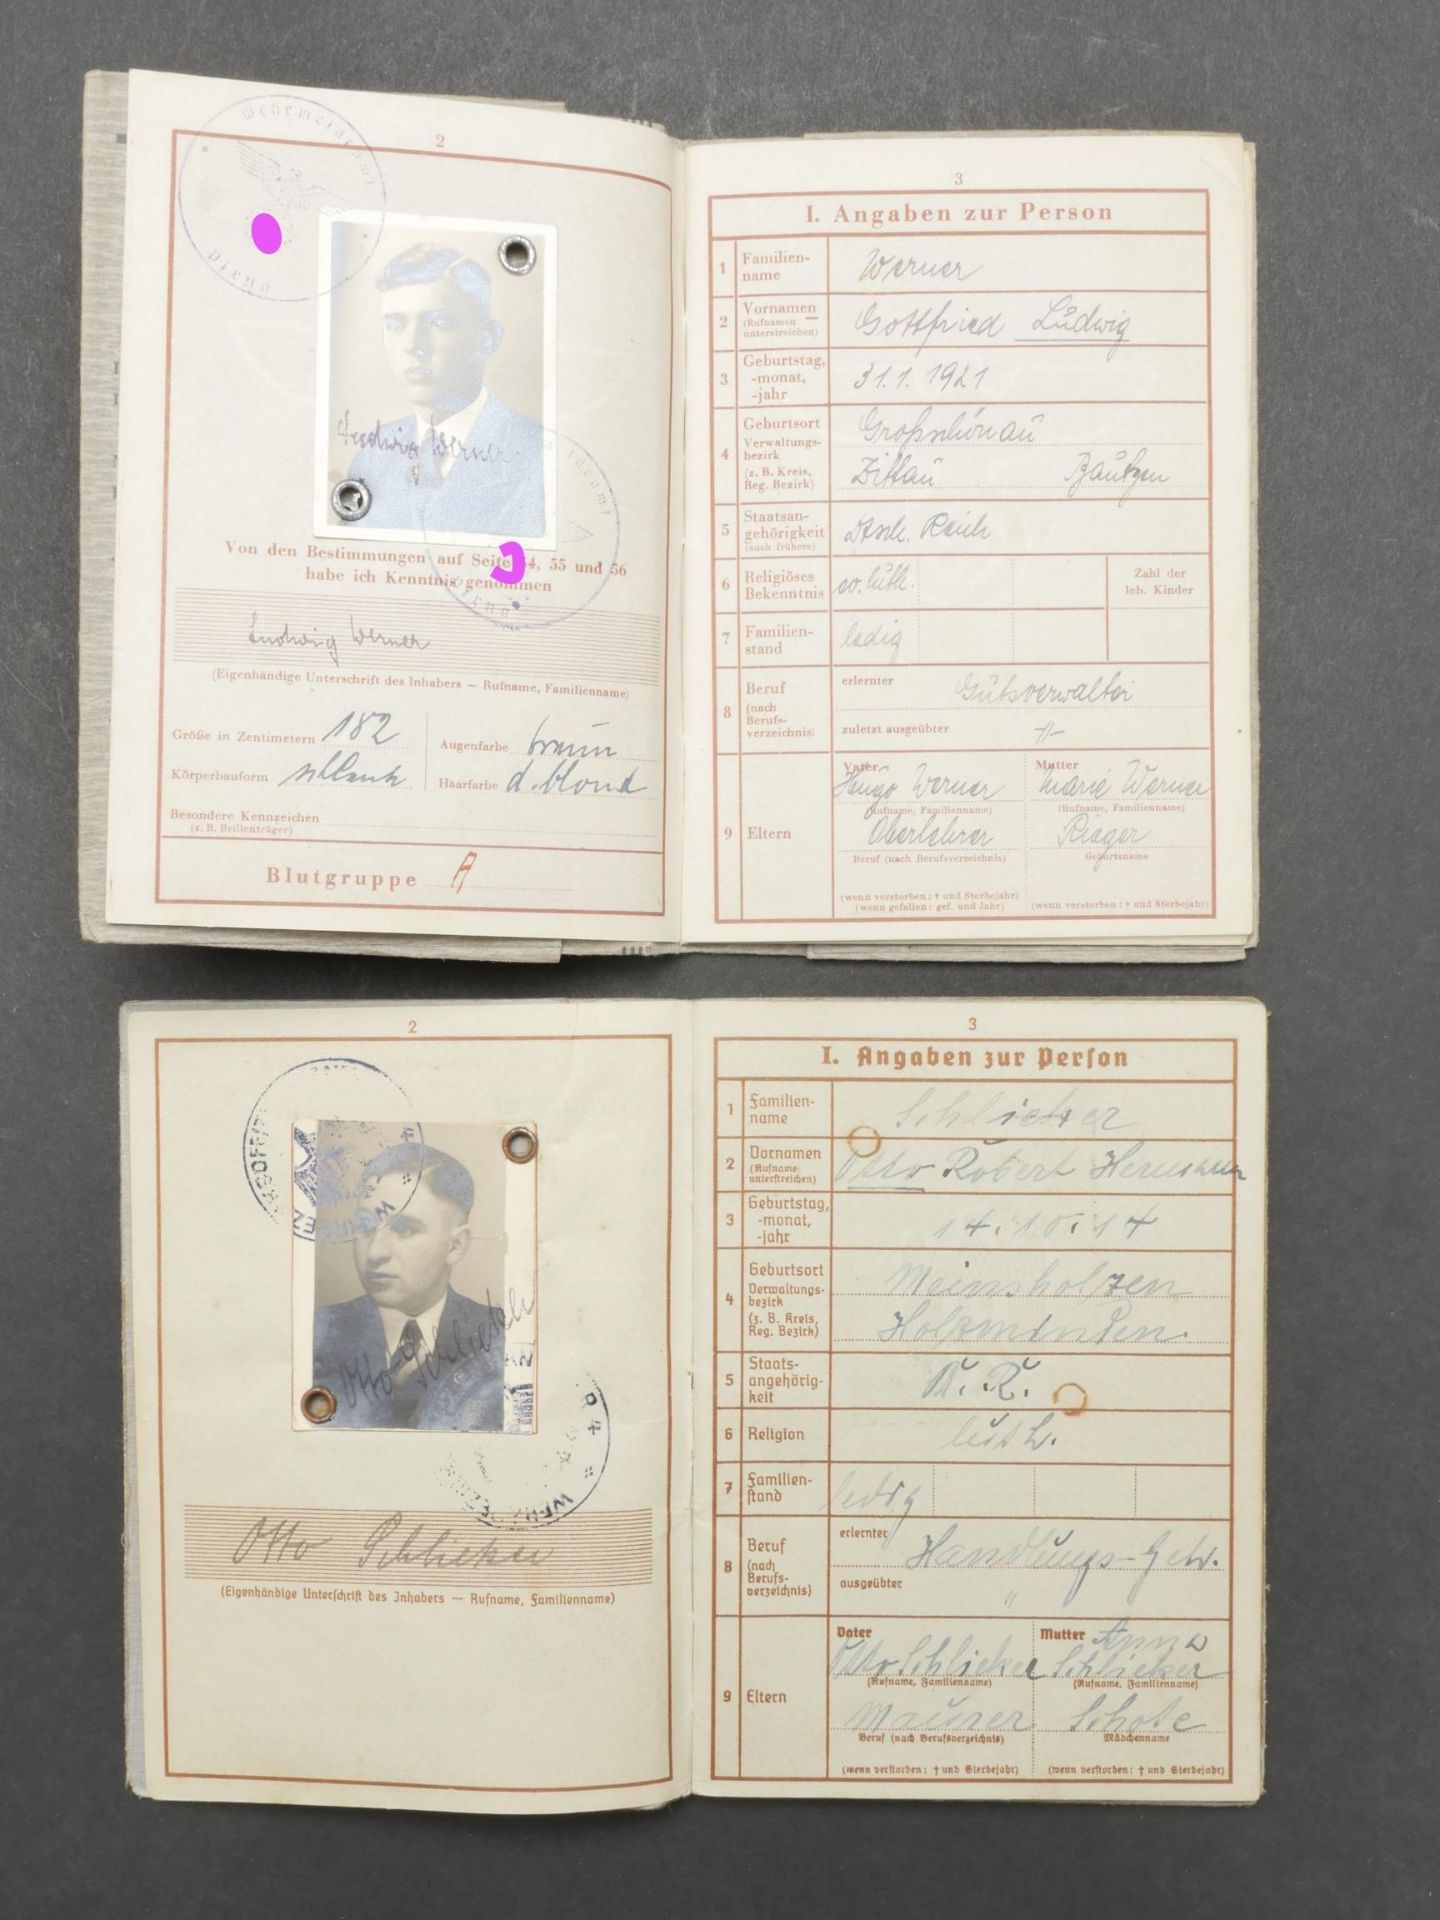 Wehrmeldeamt
Pirna
2
Ludwig Werner
Von den Bestimmungen auf Seite 54, 55 und 56
habe ich Kenntnis genommen
Ludwig Werner
(Eigenhändige Unterschrift des Inhabers – Rufname, Familienname)
Größe in Zentimetern 182
Augenfarbe braun
Körperbauform schlank
Haarfarbe d. blond
Besondere Kennzeichen
(z. B. Brillenträger)
Blutgruppe A
3
I. Angaben zur Person
1 Familien-
name
Werner
2 Vornamen
(Rufnamen
unterstreichen)
Gottfried Ludwig
3 Geburtstag,
-monat,
-jahr
31.1.1921
4 Geburtsort
Verwaltungs-
bezirk
(z. B. Kreis,
Reg. Bezirk)
Großschönau
Zittau Bautzen
5 Staatsan-
gehörigkeit
(auch frühere)
Dtsch. Reich
6 Religiöses
Bekenntnis
ev. luth.
Zahl der
leb. Kinder
7 Familien-
stand
ledig
8 Beruf
(nach
Berufs-
verzeichnis)
erlernter
Gutsverwalter
zuletzt ausgeübter
-"-
9 Eltern
Vater
Hugo Werner
(Rufname, Familienname)
Oberlehrer
Beruf (nach Berufsverzeichnis)
(wenn verstorben: † und Sterbejahr)
(wenn gefallen: gef. und Jahr)
Mutter
Marie Werner
(Rufname, Familienname)
Rieger
Geburtsname
(wenn verstorben: † und Sterbejahr)
2
Otto Schlieker
Otto Schlieker
(Eigenhändige Unterschrift des Inhabers — Rufname, Familienname)
3
I. Angaben zur Person
1 Familien-
name
Schlieker
2 Vornamen
(Rufname
unterstreichen)
Otto Robert Hermann
3 Geburtstag,
-monat,
-jahr
14.10.14
4 Geburtsort
Verwaltungs-
bezirk
(z. B. Kreis,
Reg. Bezirk)
Meinsholzen
Holzminden.
5 Staats-
angehörig-
keit
D. R.
6 Religion
luth.
7 Familien-
stand
ledig
8 Beruf
(nach
Berufs-
verzeichnis)
erlernter
Handlungs-Geh.
ausgeübter
"
9 Eltern
Vater
Otto Schlieker
(Rufname, Familienname)
Maurer
Beruf (nach Berufsverzeichnis)
(wenn verstorben: † und Sterbejahr)
Mutter Anna
Schlieker
(Rufname, Familienname)
Schote
Mädchenname
(wenn verstorben: † und Sterbejahr)